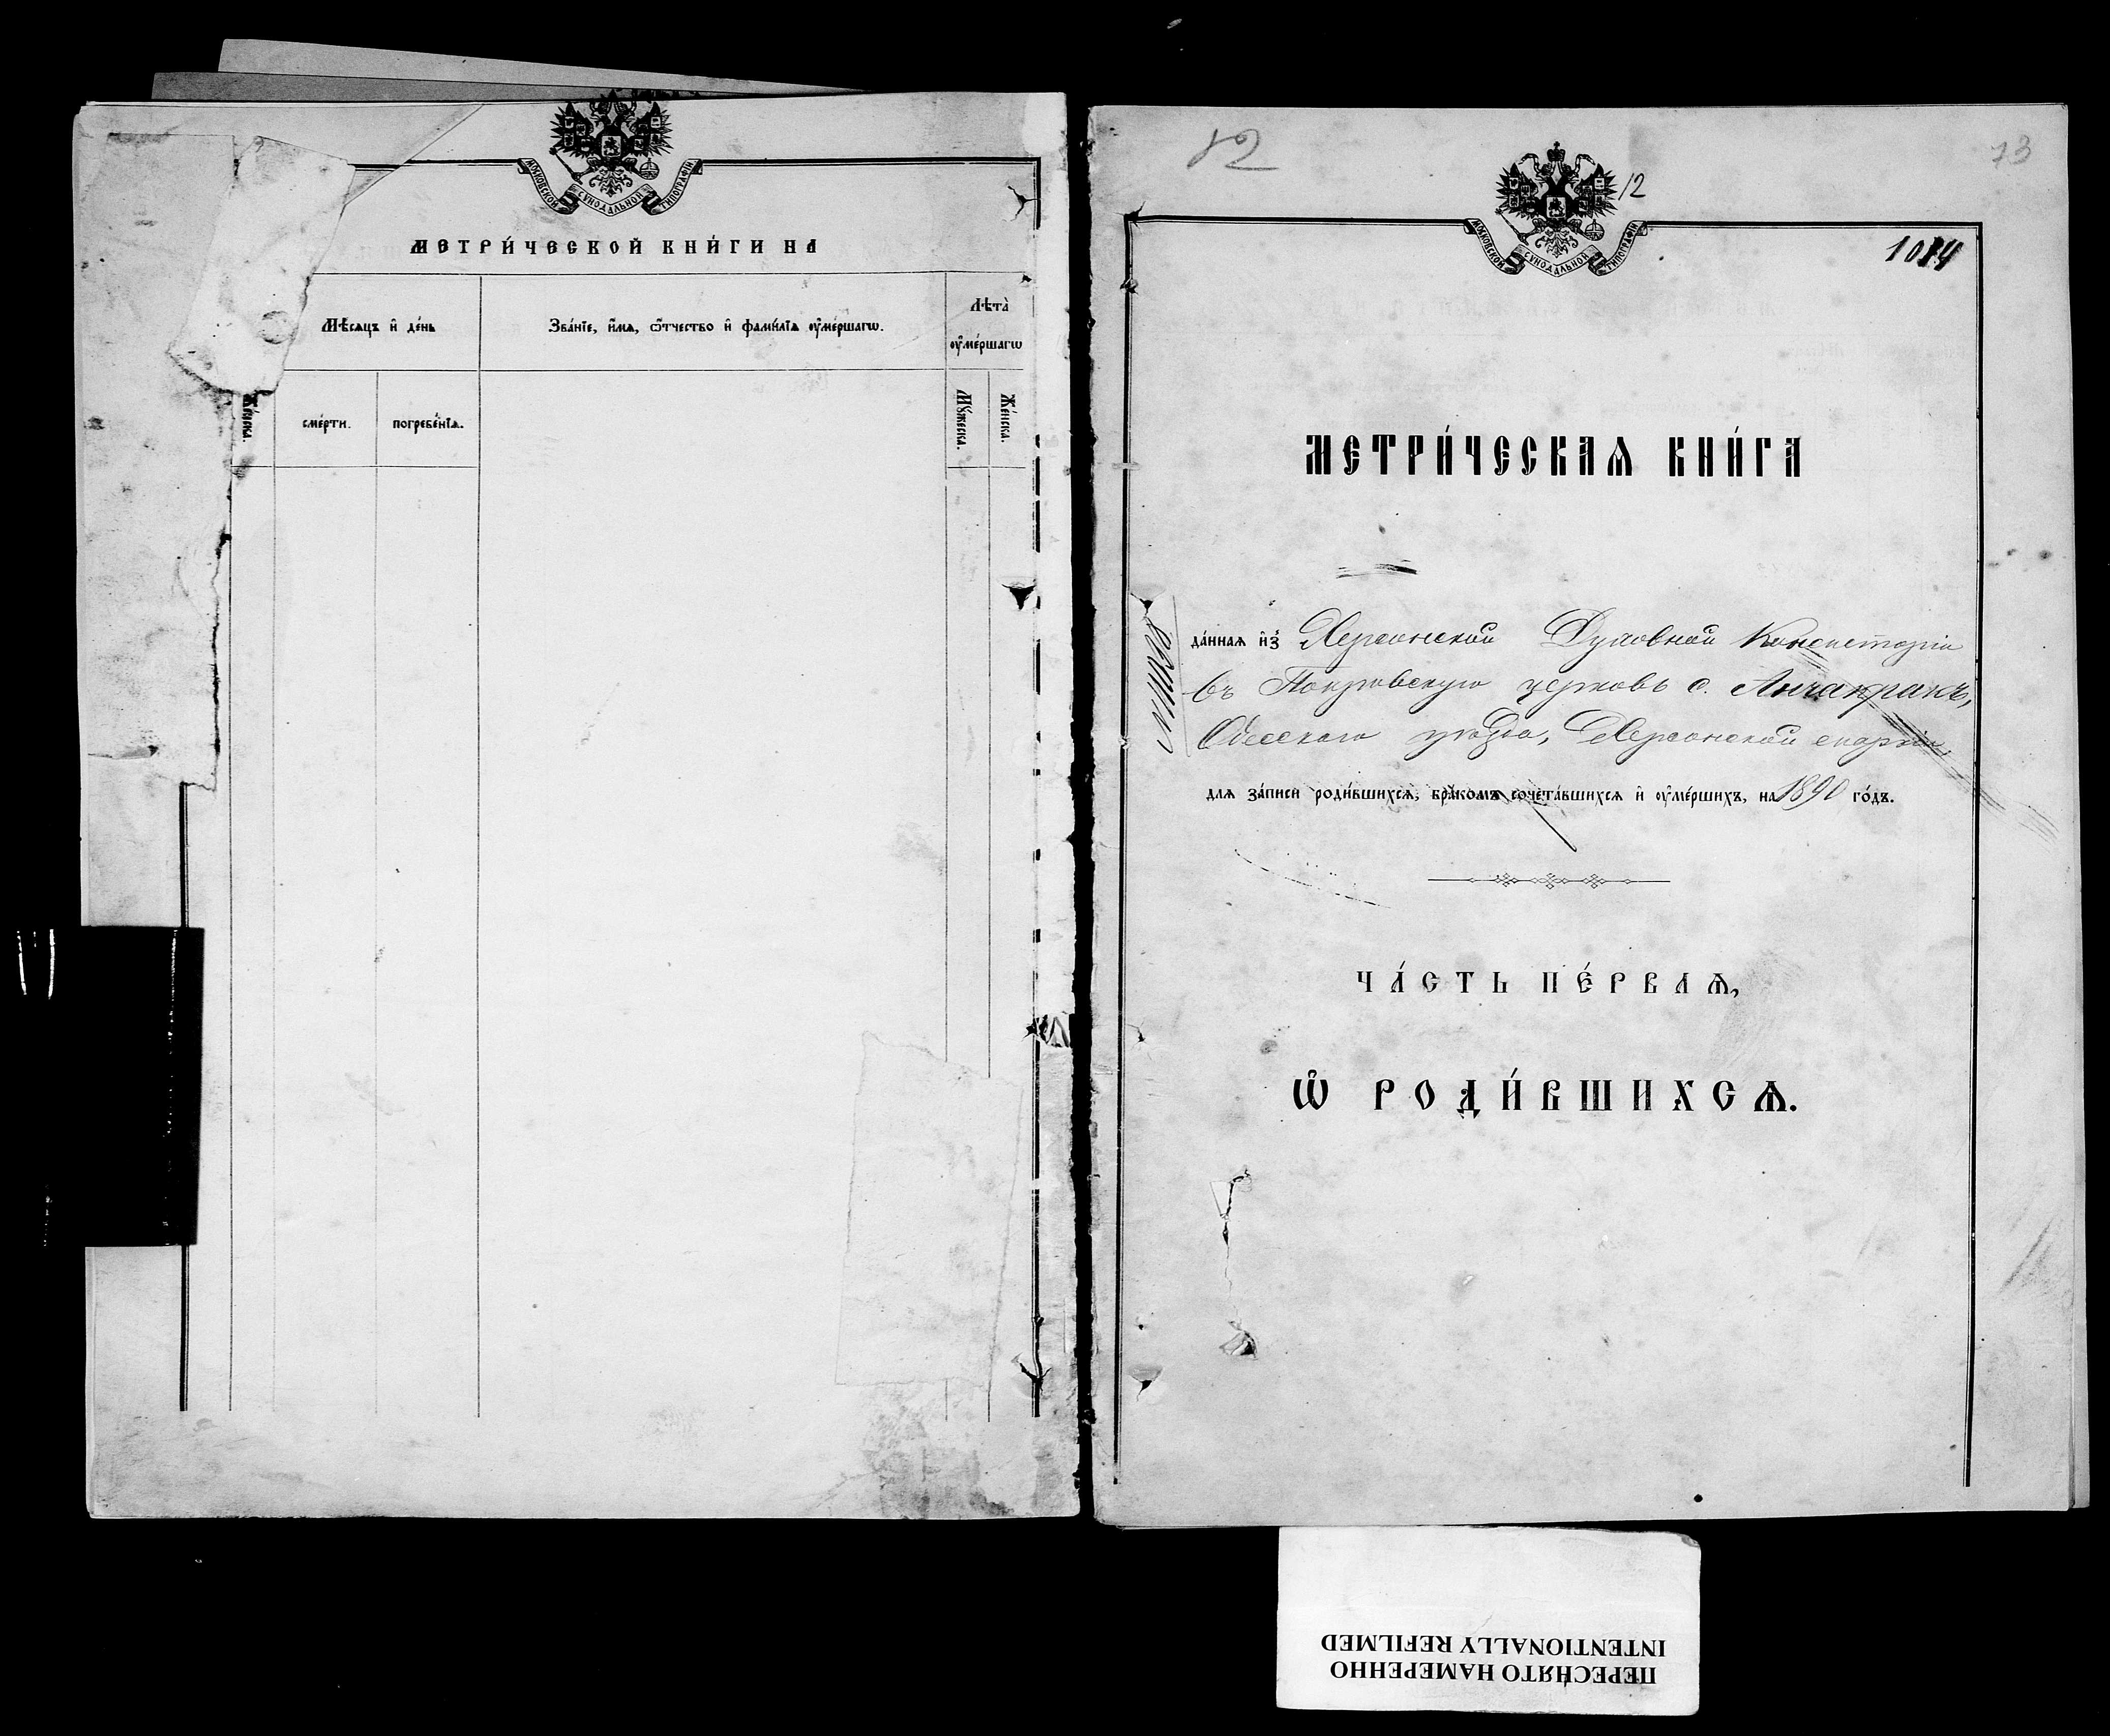 МОСКОВСКОЙ СѴНОДАЛЬНОЙ ТИПОГРАФІИ
МЕТРИ́ЧЕСКОЙ КНИ́ГИ НА
Мѣсяцъ и҆ де́нь
Зва́нїе, и҆́мѧ, ѻ҆́тчество и҆ фами́лїѧ ᲂу҆ме́ршагѡ.
Лѣта̀
ᲂу҆ме́ршагѡ
Же́нска.
сме́рти.
погребе́нїѧ.
Мꙋ́жеска.
Же́нска.
12
73
12
МОСКОВСКОЙ СѴНОДАЛЬНОЙ ТИПОГРАФІИ
1014
МЕТРИ́ЧЕСКАѦ КНИ́ГА
да́ннаѧ и҆з̾ Херсонской Духовной Консисторіи
въ Покровскую церковь с. Анчакракъ,
Одесскаго уѣзда, Херсонской епархіи,
длѧ за́писи роди́вшихсѧ, бра́комъ сочета́вшихсѧ и҆ ᲂу҆ме́ршихъ, на 1890 го́дъ.
ЧА́СТЬ ПЕ́РВАѦ,
Ѡ҆ РОДИ́ВШИХСѦ.
ПЕРЕСНЯТО НАМЕРЕННО
INTENTIONALLY REFILMED